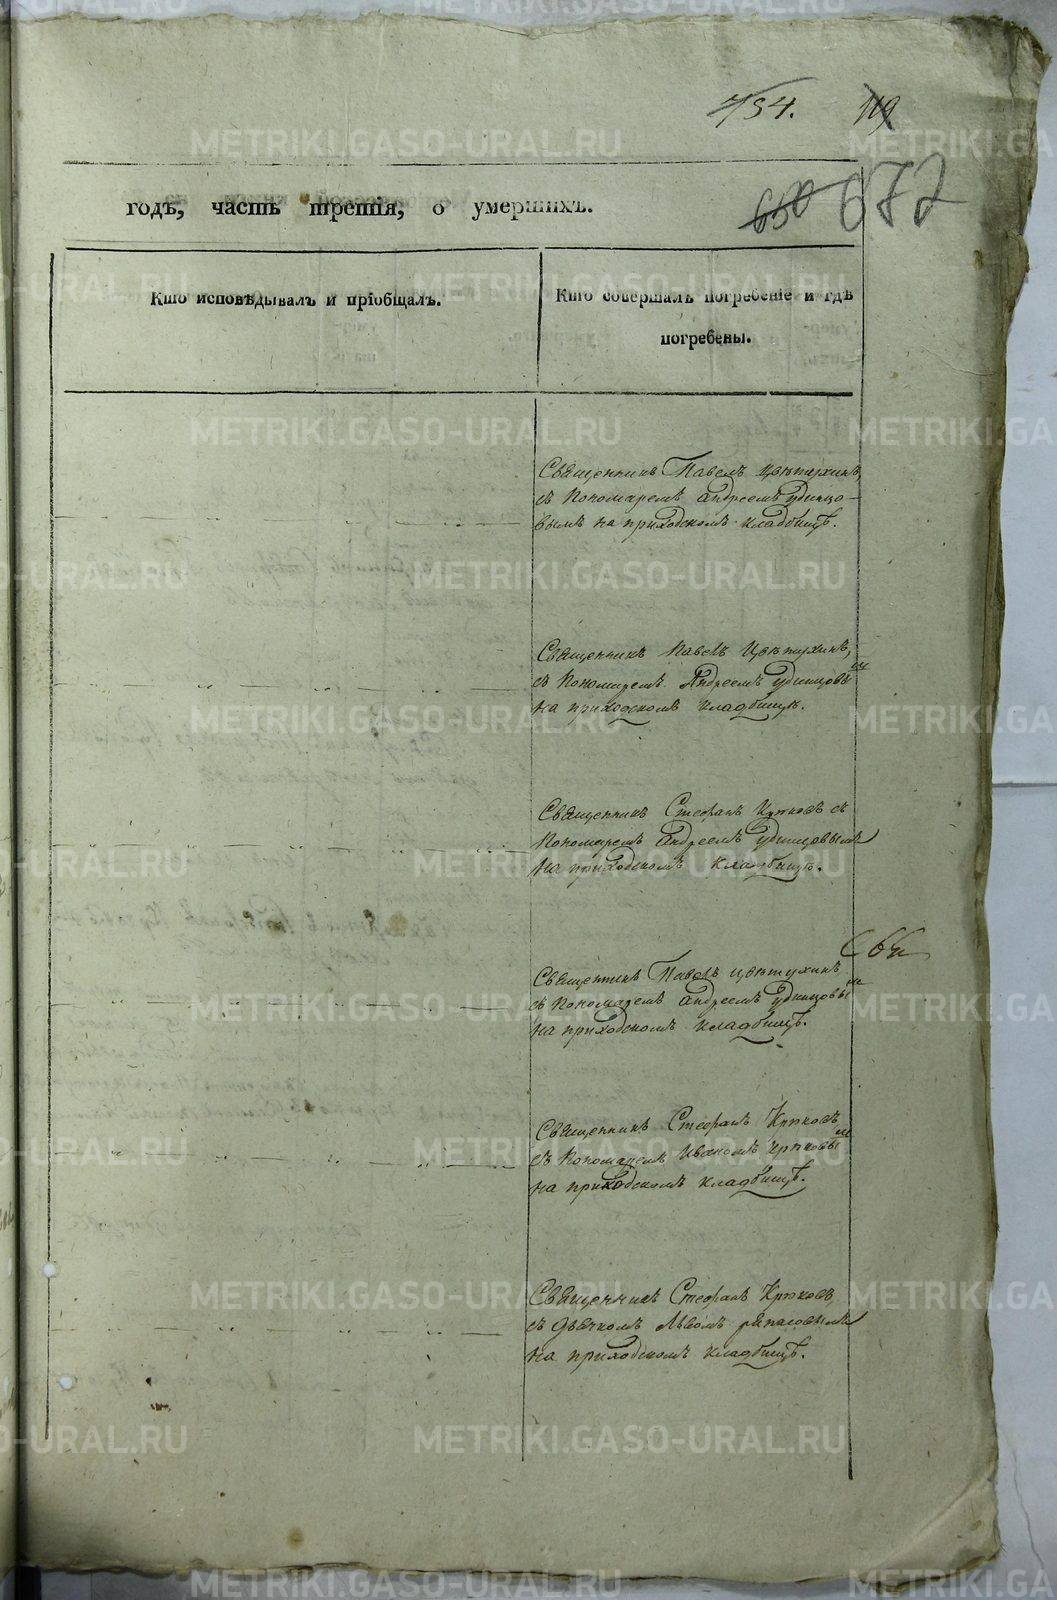 734. 119
650 672
годъ, часть третія, о умершихъ.
Кто исповѣдывалъ и пріобщалъ.
Кто совершалъ погребеніе и гдѣ
погребены.
Священникъ Павелъ Цвѣтухинъ,
съ Пономаремъ Андреемъ Удинцо-
вымъ на приходскомъ кладбищѣ.
Священникъ Павелъ Цвѣтухинъ,
съ Пономаремъ Андреемъ Удинцовымъ
на приходскомъ кладбищѣ.
Священникъ Стефанъ съ
Пономаремъ Андреемъ Удинцовымъ
на приходскомъ кладбищѣ.
Священникъ Павелъ Цвѣтухинъ
съ Пономаремъ Андреемъ Удинцовымъ
на приходскомъ кладбищѣ.
Священникъ Стефанъ
съ Пономаремъ Иваномъ
на приходскомъ кладбищѣ.
Священникъ Стефанъ
съ дьячкомъ Львомъ
на приходскомъ кладбищѣ.
METRIKI.GASO-URAL.RU